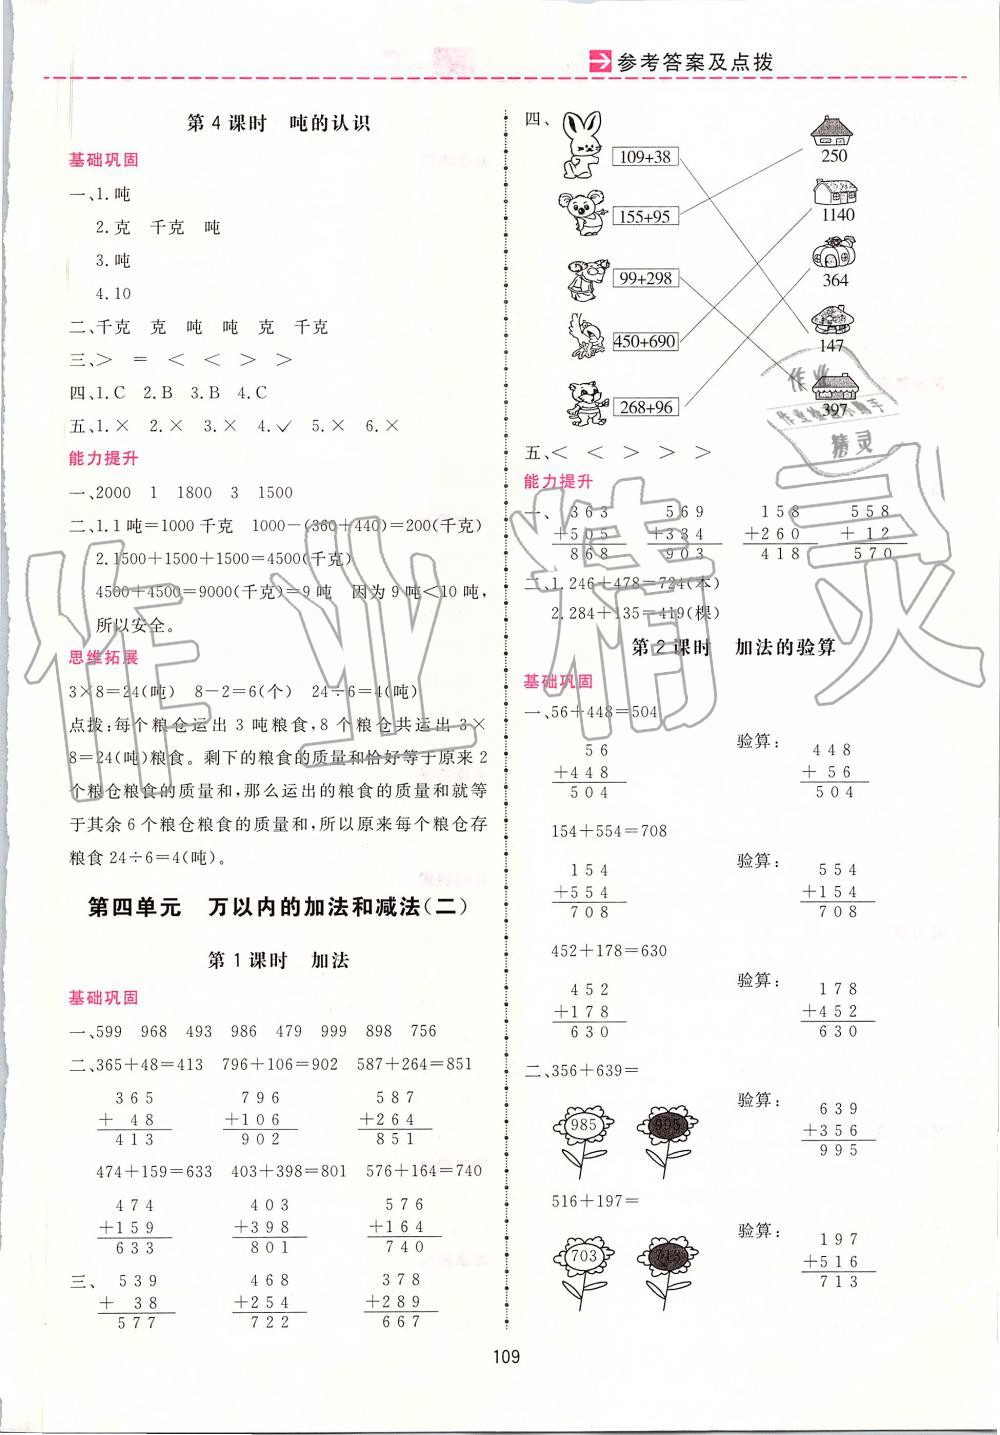 参考答案及点拨
第4课时 吨的认识
基础巩固
一、1.吨
2.克 千克 吨
3.吨
4.10
二、千克 克 吨 吨 克 千克
三、> = < < > >
四、1.C 2.B 3.B 4.C
五、1.× 2.× 3.× 4.✓ 5.× 6.×
能力提升
一、2000 1 1800 3 1500
二、1.1吨=1000千克 1000-(360+440)=200(千克)
2.1500+1500+1500=4500(千克)
4500+4500=9000(千克)=9吨 因为9吨<10吨,
所以安全。
思维拓展
3×8=24(吨) 8-2=6(个) 24÷6=4(吨)
点拨:每个粮仓运出3吨粮食,8个粮仓共运出3×
8=24(吨)粮食。剩下的粮食的质量和恰好等于原来2
个粮仓粮食的质量和,那么运出的粮食的质量和就等
于其余6个粮仓粮食的质量和,所以原来每个粮仓存
粮食24÷6=4(吨)。
第四单元 万以内的加法和减法(二)
第1课时 加法
基础巩固
一、599 968 493 986 479 999 898 756
二、365+48=413 796+106=902 587+264=851
365 796 587
+ 48 +106 +264
413 902 851
474+159=633 403+398=801 576+164=740
474 403 576
+159 +398 +164
633 801 740
三、 539 468 378
+ 38 +254 +289
577 722 667
四、
109+38
250
155+95
1140
99+298
364
450+690
147
268+96
397
五、< < > > >
能力提升
一、 363 569 158 558
+505 +334 +260 + 12
868 903 418 570
二、1.246+478=724(本)
2.284+135=419(棵)
第2课时 加法的验算
基础巩固
一、56+448=504
56 验算: 448
+448 + 56
504 504
154+554=708
154 验算: 554
+554 +154
708 708
452+178=630
452 验算: 178
+178 +452
630 630
二、356+639=
985 995 验算: 639
+356
995
516+197=
703 713 验算: 197
+516
713
109
作业精灵
作业
作业做不离手
精灵